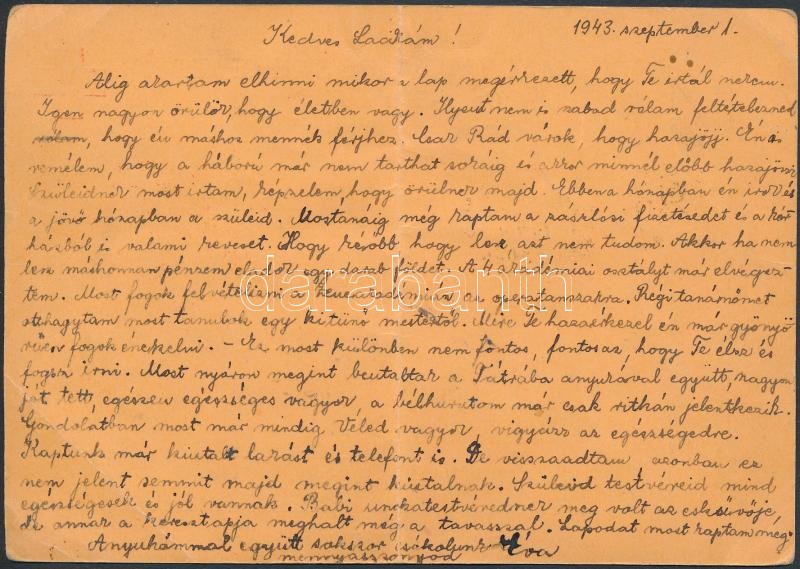 1943. szeptember 1.
Kedves Lacikám !
Alig akartam elhinni mikor a lap megérkezett, hogy Te írtál nekem.
Igen nagyon örülök, hogy életben vagy. Ilyent nem is szabad rólam feltételezned
rólam, hogy én máshoz mennék férjhez. Csak Rád várok, hogy hazajöjj. Én is
remélem, hogy a háború már nem tarthat sokáig és akkor minnél előbb hazajössz
Szüleidnek most írtam, képzelem, hogy örülnek majd. Ebben a hónapban én írok és
a jövő hónapban a szüleid. Mostanáig még kaptam a zászlósi fizetésedet és a kór
házból is valami keveset. Hogy később hogy lesz azt nem tudom. Akkor ha nem
lesz máshonnan pénzem eladok egy darab földet. A 4 akadémiai osztályt már elvégez
tem. Most fogok felvételizni a Zeneakadémián az operatanszakra. Régi tanárnőmet
otthagytam most tanulok egy kitünő mestertől. Mire Te hazaérkezel én már gyönyö
rűen fogok énekelni. – Ez most különben nem fontos, fontos az, hogy Te élsz és
fogsz írni. Most nyáron megint beutaltak a Tátrába anyukával együtt, nagyon
jót tett, egészen egészséges vagyok a bélhurutom már csak ritkán jelentkezik.
Gondolatban most már mindig Véled vagyok, vigyázz az egészségedre.
Kaptunk már kiutalt lakást és telefont is. De visszaadtam, azonban ez
nem jelent semmit majd megint kiutalnak. Szüleid testvéreid mind
egészségesek és jól vannak. Babi unokatestvérednek meg volt az esküvője,
de annak a keresztapja meghalt még a tavasszal. Lapodat most kaptam meg.
Anyukámmal együtt sokszor csókolunk Éva
mennyasszonyod
darabanth